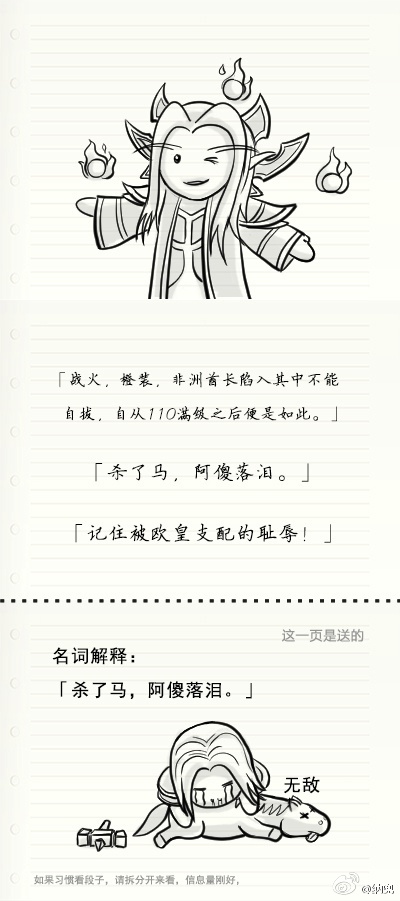 「战火，橙装，非洲酋长陷入其中不能
自拔，自从110满级之后便是如此。」
「杀了马，阿傻落泪。」
「记住被欧皇支配的耻辱！」
这一页是送的
名词解释：
「杀了马，阿傻落泪。」
无敌
如果习惯看段子，请拆分开来看，信息量刚好，